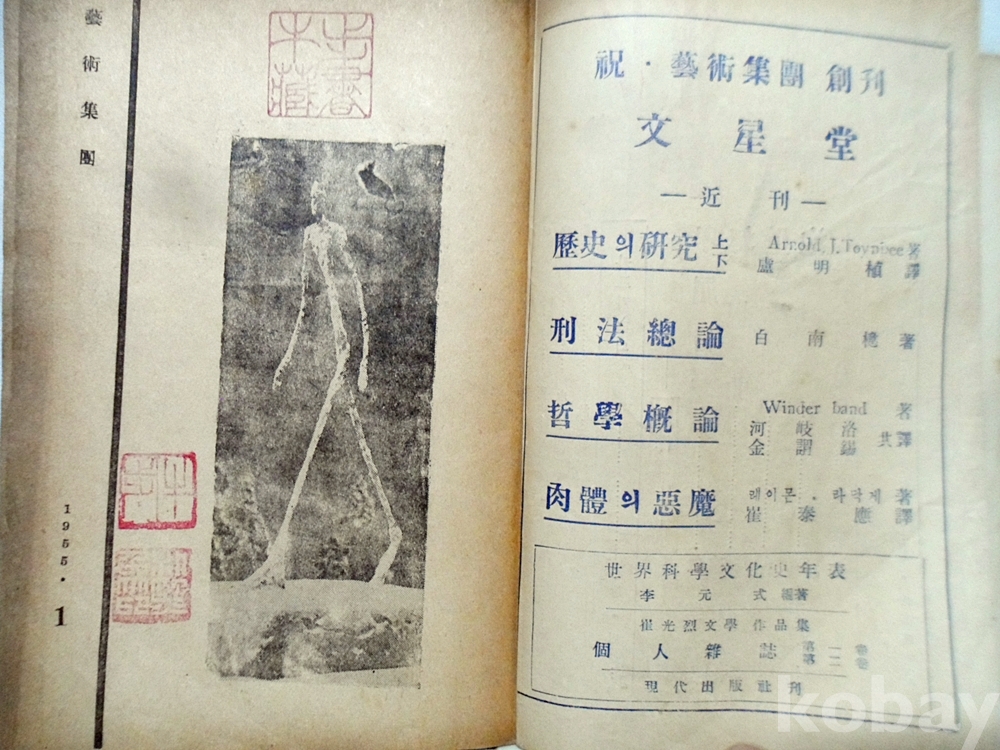 藝術集團
1955・1
祝・藝術集團 創刊
文星堂
—近刊—
歷史의硏究 上下 Arnold J. Toynbee 著
盧明植 譯
刑法總論 白南檍 著
哲學槪論 Winder band 著
河岐洛
金謂錫 共譯
肉體의惡魔 레이몬・라디게 著
崔泰應 譯
世界科學文化史年表
李元式 編著
崔光烈文學作品集
個人雜誌 第一卷 第二卷
現代出版社刊
kobay